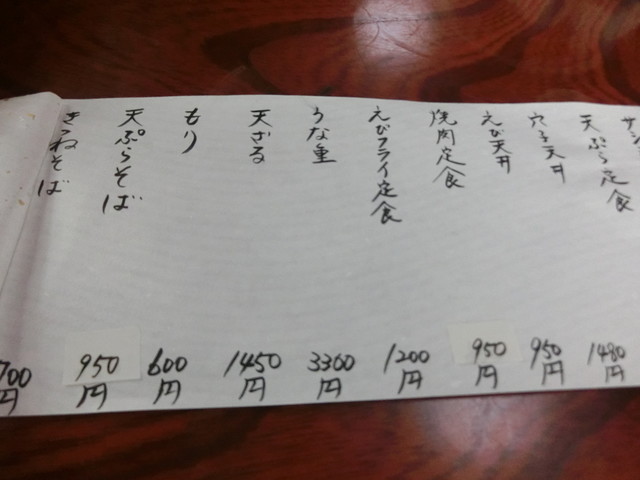 天ぷら定食 1480円
穴子天丼 950円
えび天丼 950円
焼肉定食
えびフライ定食 1200円
うな重 3300円
天ざる 1450円
もり 600円
天ぷらそば 950円
きつねそば 700円